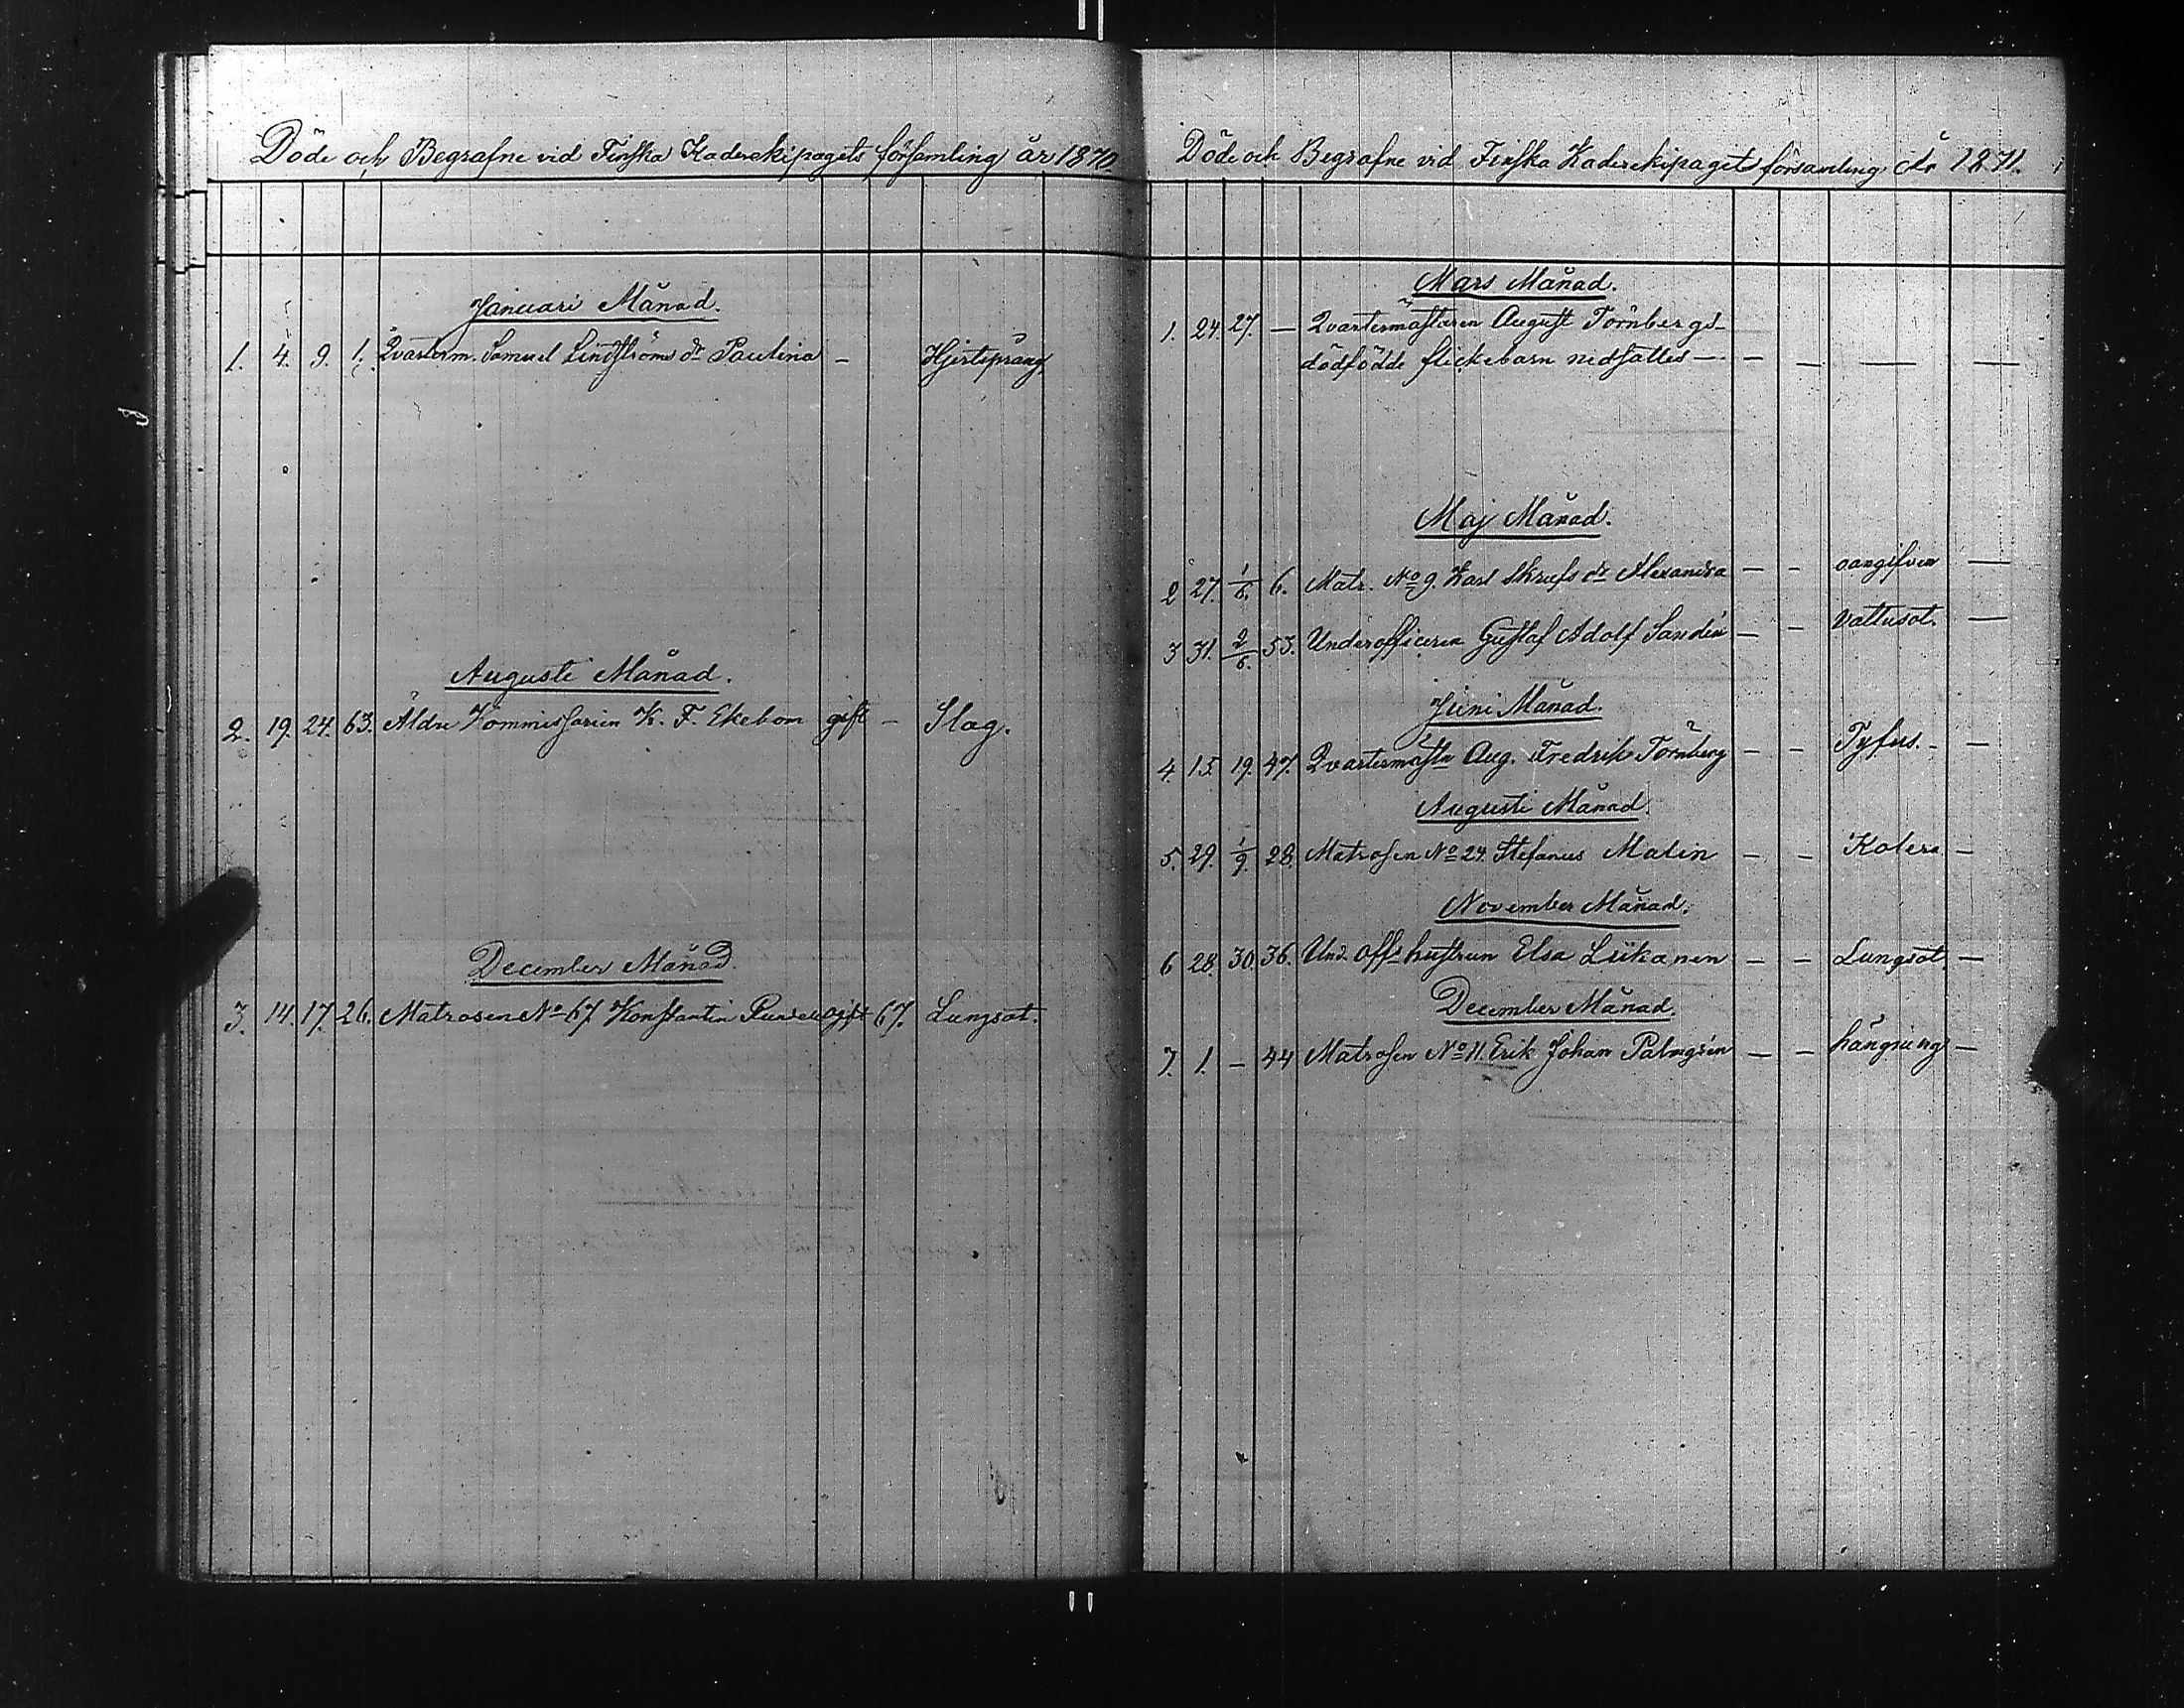 Döde och Begrafne vid Finska Kaderekipagets församling år 1870.
Januari Månad.
1. 4. 9. 1. Qvarterm. Samuel Lindströms dr Paulina - Hjertsprång.
Augusti Månad.
2. 19. 24. 63. Äldre Kommissarien K. F. Ekebom gift - Slag.
December Månad.
3. 14. 17. 26. Matrosen No 67. Konstantin gift 67. Lungsot.
Döde och Begrafne vid Finska Kaderekipagets församling År 1871.
Mars Månad.
1. 24. 27. — Qvartermästaren August Törnbergs
dödfödde flickebarn nedsattes — — — — —
Maj Månad.
2 27. 1/6. 6. Matr. No 9. Karl Skrufs dr Alexandra — - oangifven —
3 31. 2/6. 53. Underofficeren Gustaf Adolf Sandén — - Vattusot. —
Juni Månad.
4. 15. 19. 47. Qvartermästn Aug. Fredrik Törnberg — - Tyfus. - —
Augusti Månad.
5. 29. 1/9. 28. Matrosen No 24. Stefanus Malin — - Kolera —
November Månad.
6 28. 30. 36. Und. offs hustrun Elsa Liikanen — - Lungsot. —
December Månad.
7. 1. — 44 Matrosen No 11. Erik Johan Palmgrén — - hängning —